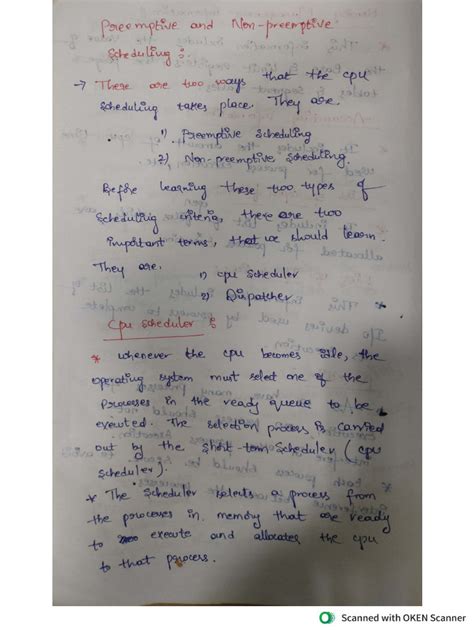 Preemptive and Non-preemptive
Scheduling :
→ There are two ways that the cpu
scheduling takes place. They are.
1) Preemptive Scheduling
2) Non-preemptive Scheduling.
Before learning these two types of
Scheduling criteria, there are two
important terms, that we should learn.
They are.
1) cpu Scheduler
2) Dispatcher
Cpu Scheduler :
* whenever the cpu becomes idle, the
operating system must select one of the
Processes in the ready queue to be
executed. The selection process is carried
out by the short-term Scheduler (cpu
Scheduler).
* The Scheduler selects a process from
the processes in memory that are ready
to execute and allocates the cpu
to that process.
Scanned with OKEN Scanner